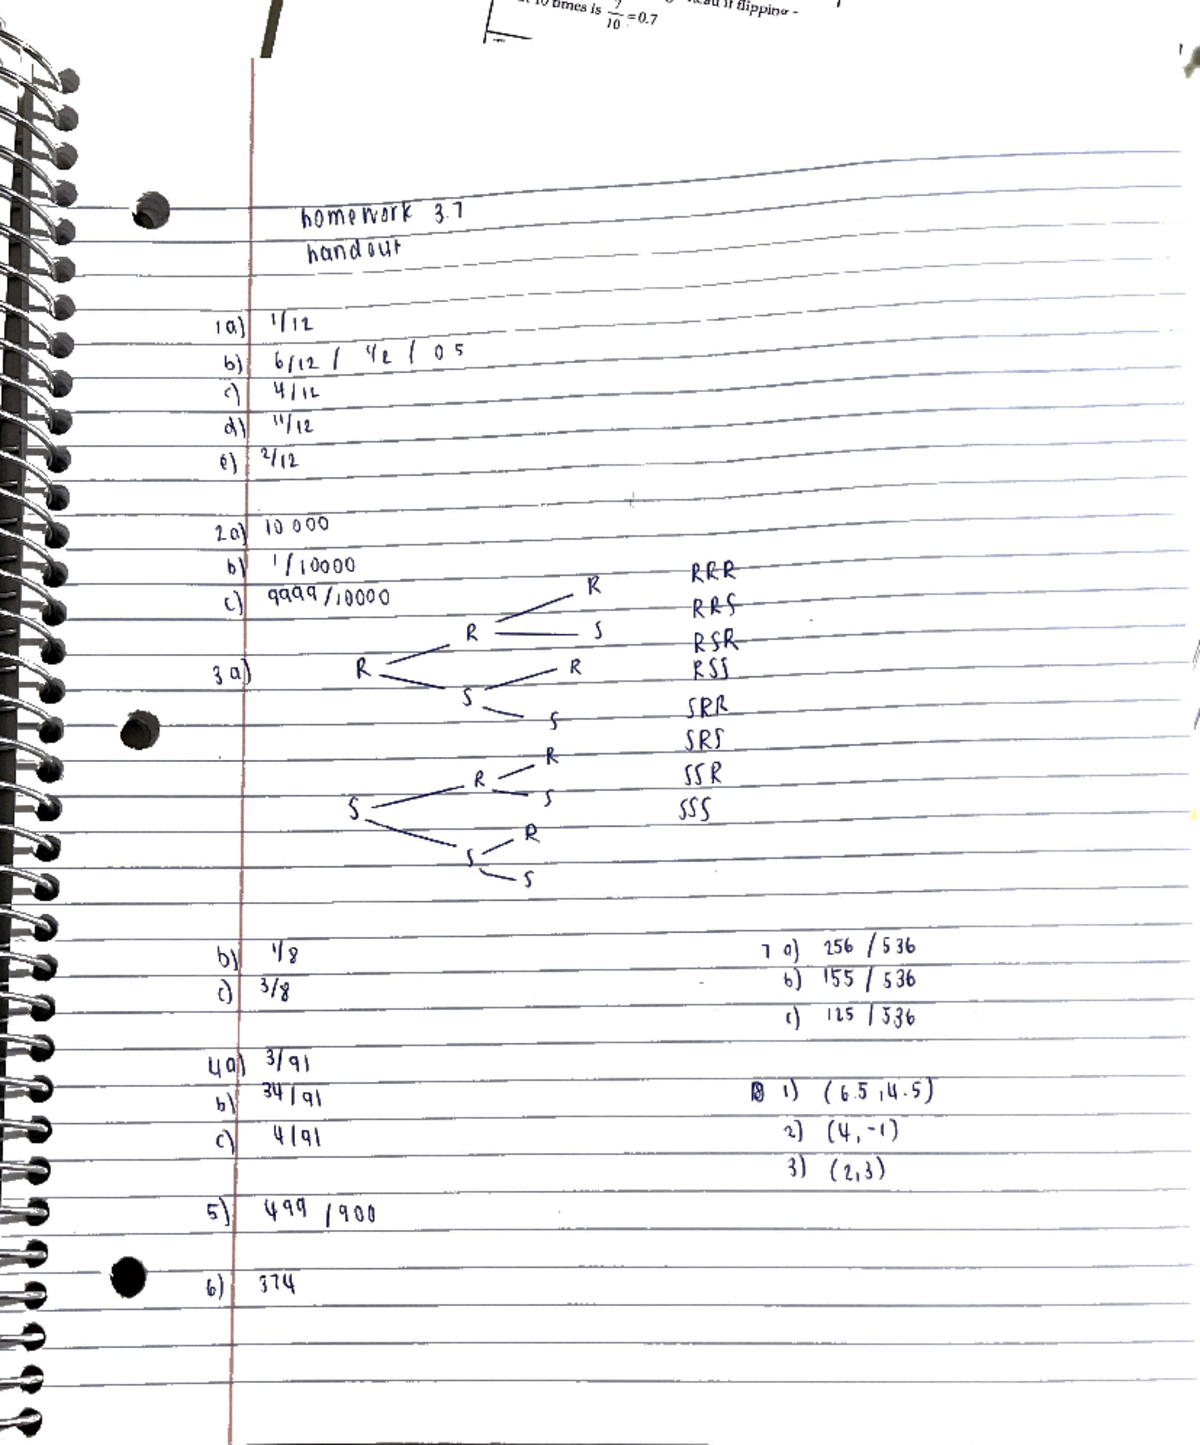 10 times is 7/10 = 0.7
if flipping -
homework 3.7
handout
1a) 1/12
b) 6/12 / 1/2 / 0 5
c) 4/12
d) 11/12
e) 2/12
2a) 10 000
b) 1/10000
c) 9999/10000
3a)
R R R RRR
S RRS
S R RSR
S RSS
S R R SRR
S SRS
S R SSR
S SSS
b) 1/8
c) 3/8
4a) 3/91
b) 34/91
c) 4/91
5) 499 /900
6) 374
7 a) 256 / 536
b) 155 / 536
c) 125 / 536
1) (6.5 ,4.5)
2) (4, -1)
3) (2,3)